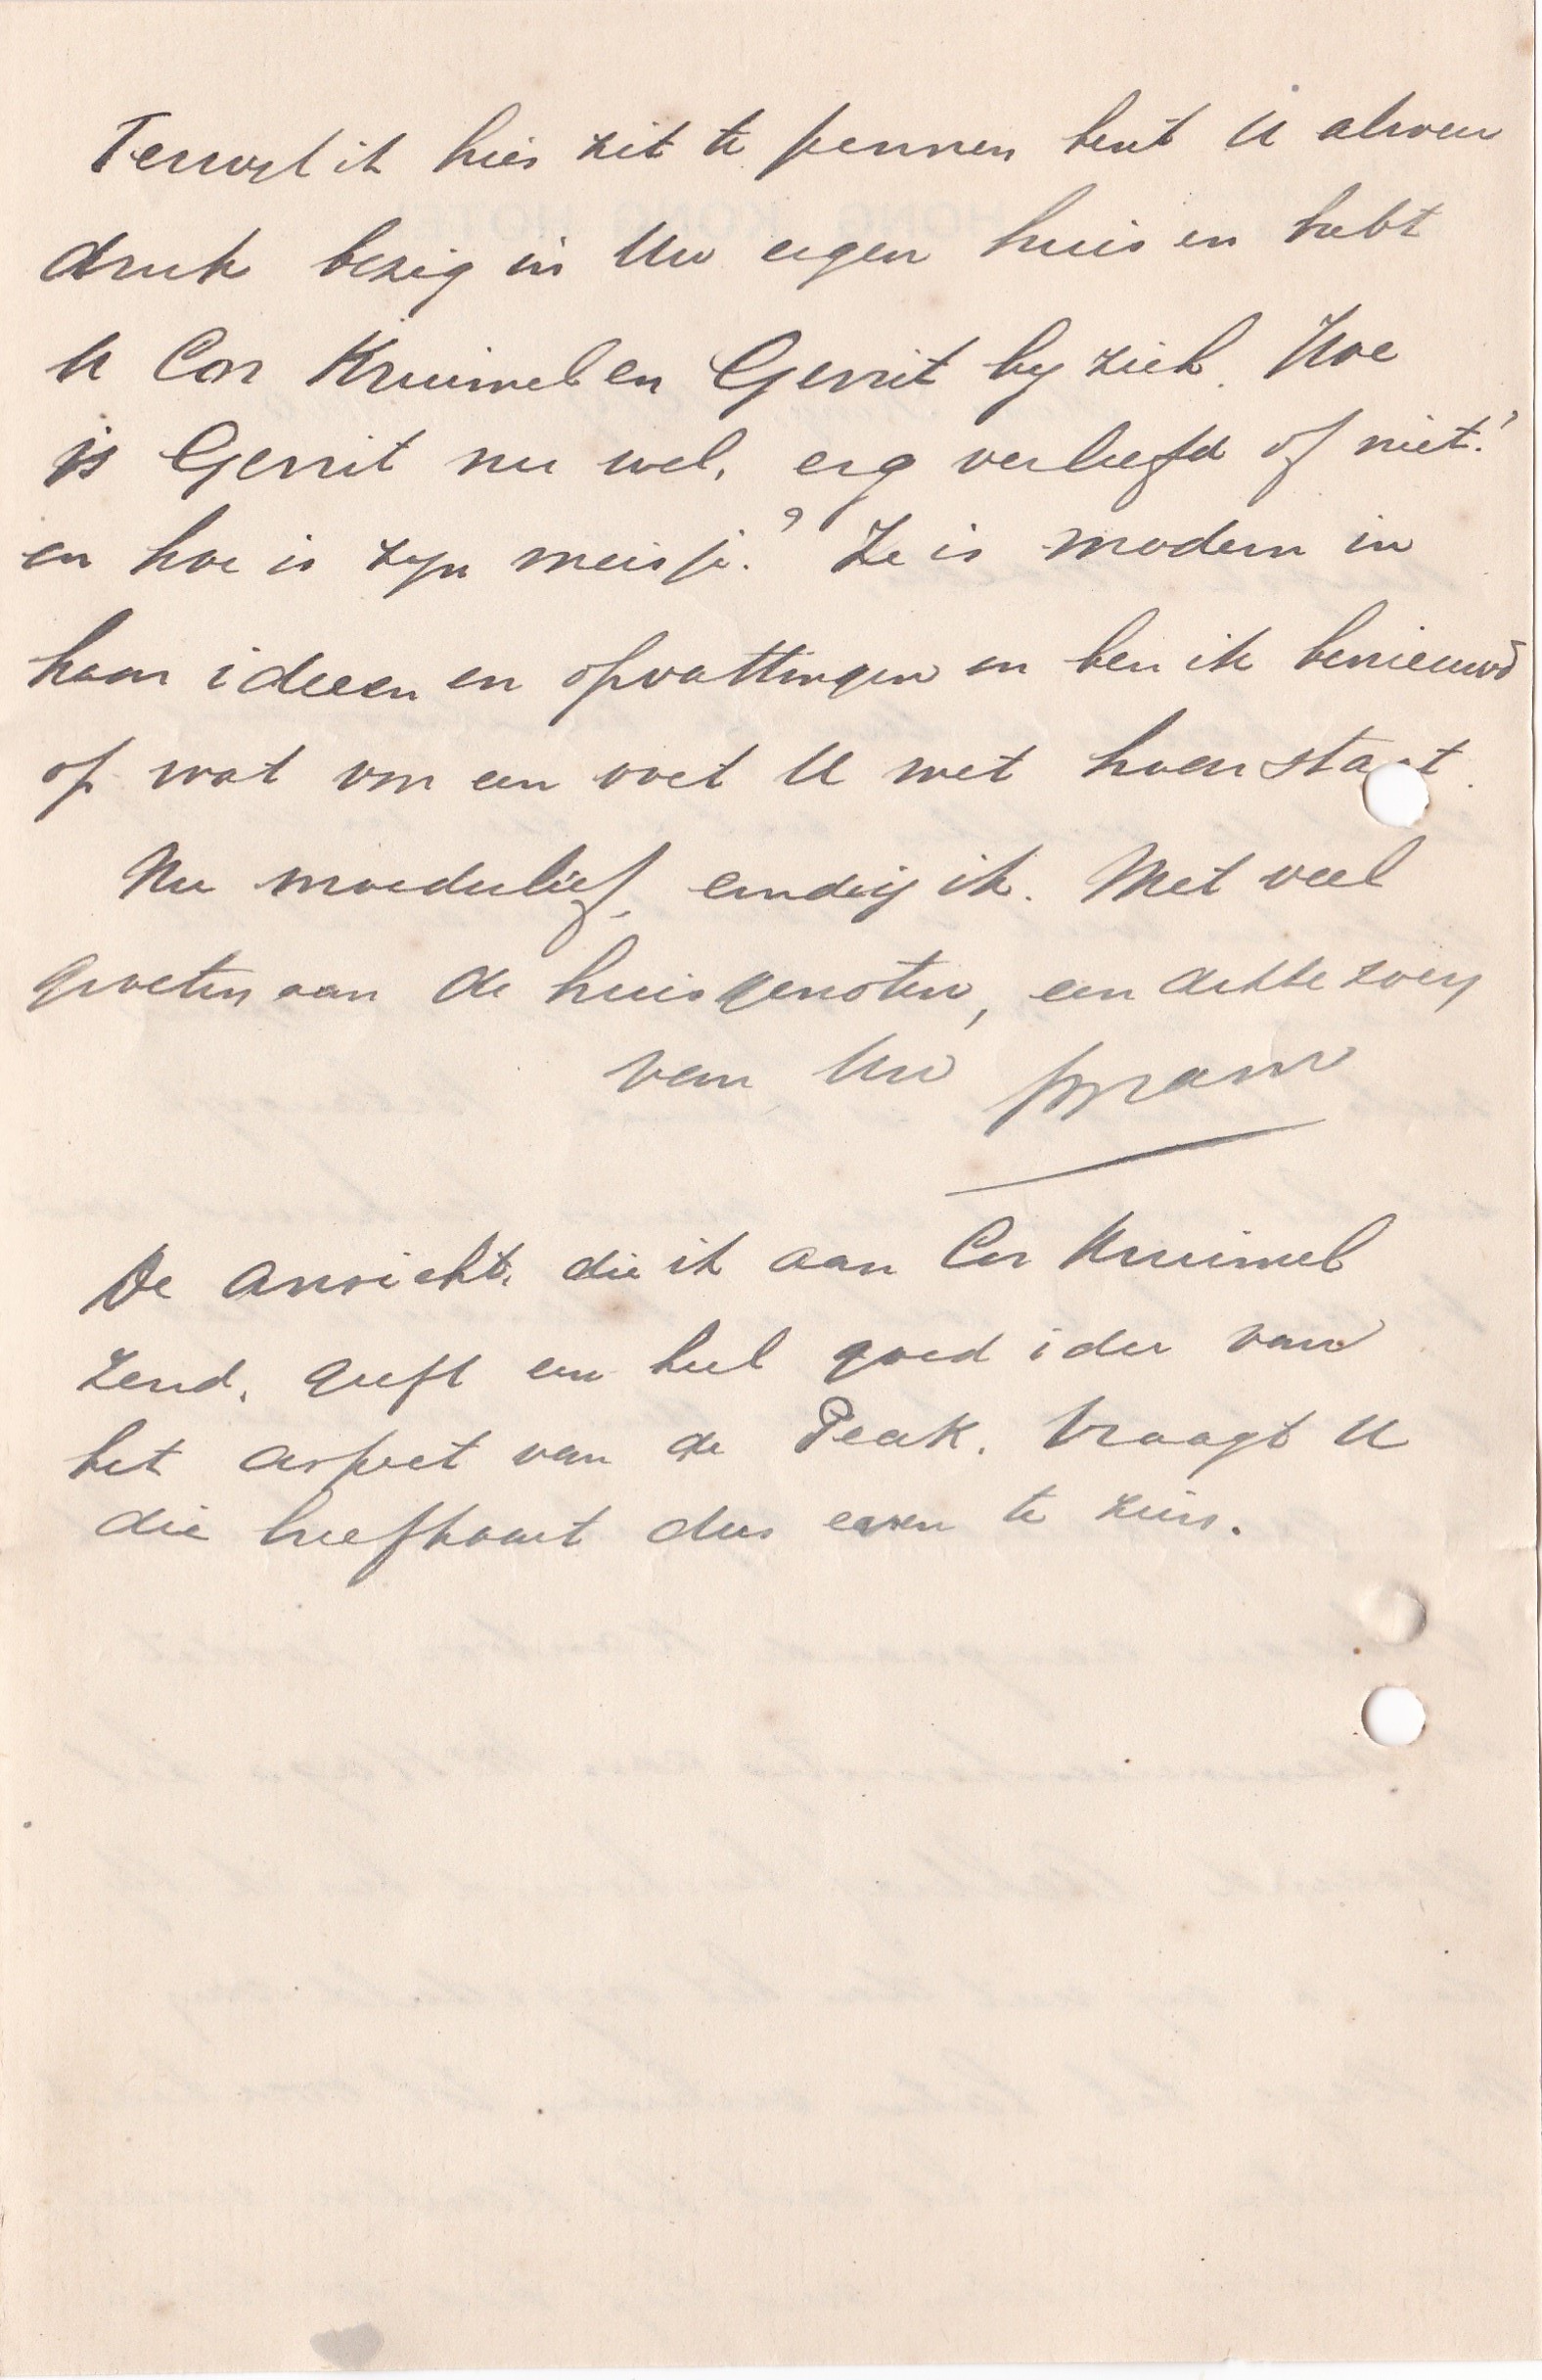 Terwyl ik hier zit te pennen bent U alweer
druk bezig in Uw eigen huis en hebt
U Cor Kruimel en Gerrit by zich. Hoe
is Gerrit nu wel, erg verliefd of niet?
en hoe is zyn meisje? Ze is modern in
haar ideeen en opvattingen en ben ik benieuwd
op wat voor een voet U met haar staat.
Nu moederlief, eindig ik. Met veel
groeten aan de huisgenoten, een dikke zoen
van Uw Bram
De ansicht, die ik aan Cor Kruimel
zend, geeft een heel goed idee van
het aspect van de Peak. Vraagt U
die briefkaart dus even te zien.